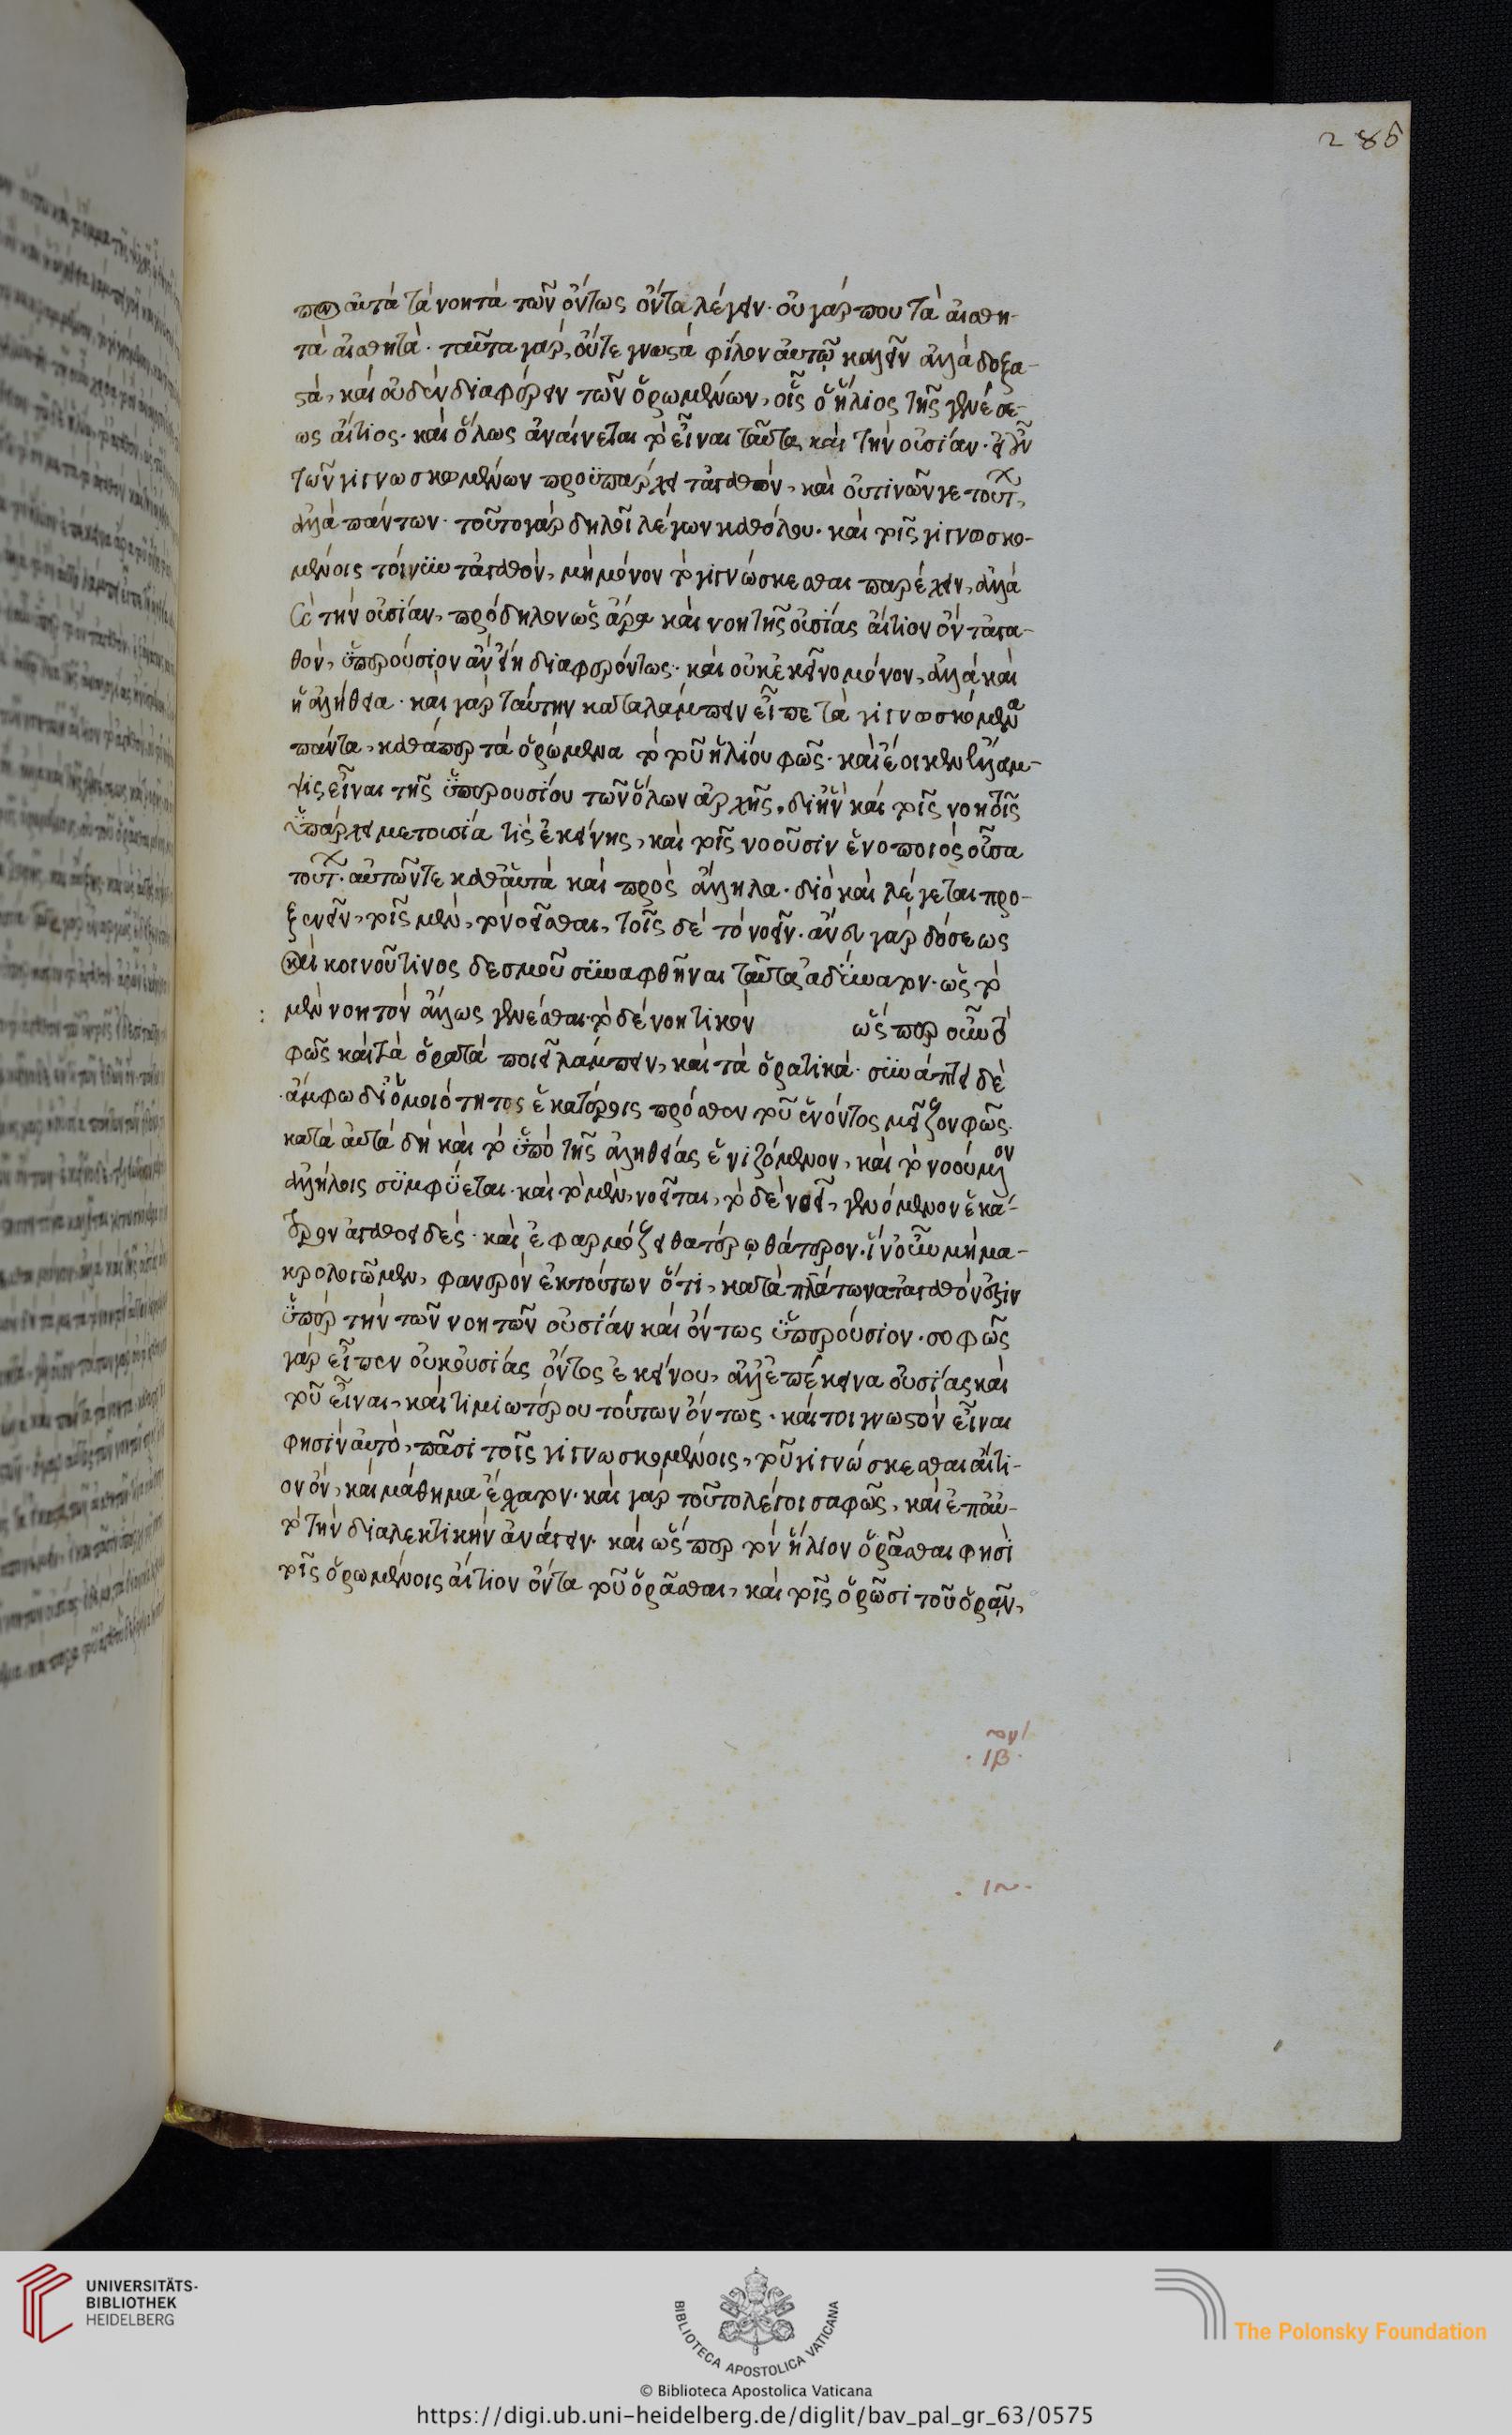 285
που αὐτὰ τὰ νοητὰ τῶν ὄντως ὄντα λέγειν· οὐ γάρ που τὰ αἰσθη-
τὰ αἰσθητά· ταῦτα γὰρ, οὔτε γνωστὰ φίλον αὐτῷ καλεῖν ἀλλὰ δοξα-
στά, καὶ οὐδὲν διαφέρειν τῶν ὁρωμένων, οἷς ὁ ἥλιος τῆς γενέσε-
ως αἴτιος· καὶ ὅλως ἀναίνεται τὸ εἶναι ταῦτα καὶ τὴν οὐσίαν·
τῶν γιγνωσκομένων προϋπάρχει τἀγαθόν, καὶ οὔτινῶν γε τούτων,
ἀλλὰ πάντων· τοῦτο γὰρ δηλοῖ λέγων καθόλου· καὶ τοῖς γιγνωσκο-
μένοις τοίνυν τἀγαθόν, μὴ μόνον τὸ γιγνώσκεσθαι παρέχειν, ἀλλὰ
καὶ τὴν οὐσίαν, πρόδηλον ὡς ἄρα καὶ νοητῆς οὐσίας αἴτιον ὂν τἀγα-
θόν, ὑπερούσιον ἂν εἴη διαφερόντως· καὶ οὐκ ἐκεῖνο μόνον, ἀλλὰ καὶ
ἡ ἀλήθεια· καὶ γὰρ ταύτην καταλάμπειν εἶπε τὰ γιγνωσκόμενα
πάντα, καθάπερ τὰ ὁρώμενα τὸ τοῦ ἡλίου φῶς· καὶ ἔοικεν ἔλλαμ-
ψις εἶναι τῆς ὑπερουσίου τῶν ὅλων ἀρχῆς, δι' ἣν καὶ τοῖς νοητοῖς
ὑπάρχει μετουσία τὶς ἐκείνης, καὶ τοῖς νοοῦσιν ἑνοποιὸς οὖσα
τούτων· αὐτῶν τε καθ' αὑτὰ καὶ πρὸς ἄλληλα· διὸ καὶ λέγεται προ-
ξενεῖν, τοῖς μὲν, τὸ νοεῖσθαι, τοῖς δὲ τὸ νοεῖν· ἄνευ γὰρ δόσεως
καὶ κοινοῦ τινος δεσμοῦ συναφθῆναι ταῦτα ἀδύνατον· ὡς τὸ
μὲν νοητὸν ἄλλως γενέσθαι· τὸ δὲ νοητικόν ὥσπερ οὖν τὸ
φῶς καὶ τὰ ὁρατὰ ποιεῖ λάμπειν, καὶ τὰ ὁρατικά· συνάπτει δὲ
ἄμφω δι' ὁμοιότητος ἑκατέροις πρόσθεν τοῦ ἑνόντος μεῖζον φῶς·
κατὰ αὐτὰ δὴ καὶ τὸ ὑπὸ τῆς ἀληθείας ἑνιζόμενον, καὶ τὸ νοούμενον
ἀλλήλοις συμφύεται· καὶ τὸ μὲν, νοεῖται, τὸ δὲ νοεῖ, γενόμενον ἑκά-
τερον ἀγαθοειδές· καὶ ἐφαρμόζει θατέρῳ θάτερον· ἵν' οὖν μὴ μα-
κρολογῶμεν, φανερὸν ἐκ τούτων ὅτι, κατὰ πλάτωνα τἀγαθόν ἐστιν
ὑπὲρ τὴν τῶν νοητῶν οὐσίαν καὶ ὄντως ὑπερούσιον· σοφῶς
γὰρ εἶπεν οὐκ οὐσίας ὄντος ἐκείνου, ἀλλ' ἐπέκεινα οὐσίας καὶ
τοῦ εἶναι, καὶ τιμιωτέρου τούτων ὄντως· καίτοι γνωστὸν εἶναι
φησὶν αὐτό, πᾶσι τοῖς γιγνωσκομένοις, τοῦ γιγνώσκεσθαι αἴτι-
ον ὄν, καὶ μάθημα ἔσχατον· καὶ γὰρ τοῦτο λέγοι σαφῶς, καὶ ἐπ' αὐ-
τὸ τὴν διαλεκτικὴν ἀνάγειν· καὶ ὥσπερ τὸν ἥλιον ὁρᾶσθαι φησὶ
τοῖς ὁρωμένοις αἴτιον ὄντα τοῦ ὁρᾶσθαι, καὶ τοῖς ὁρῶσι τοῦ ὁρᾶν,
· ιβ ·
UNIVERSITÄTS-
BIBLIOTHEK
HEIDELBERG
BIBLIOTECA APOSTOLICA VATICANA
The Polonsky Foundation
© Biblioteca Apostolica Vaticana
https://digi.ub.uni-heidelberg.de/diglit/bav_pal_gr_63/0575